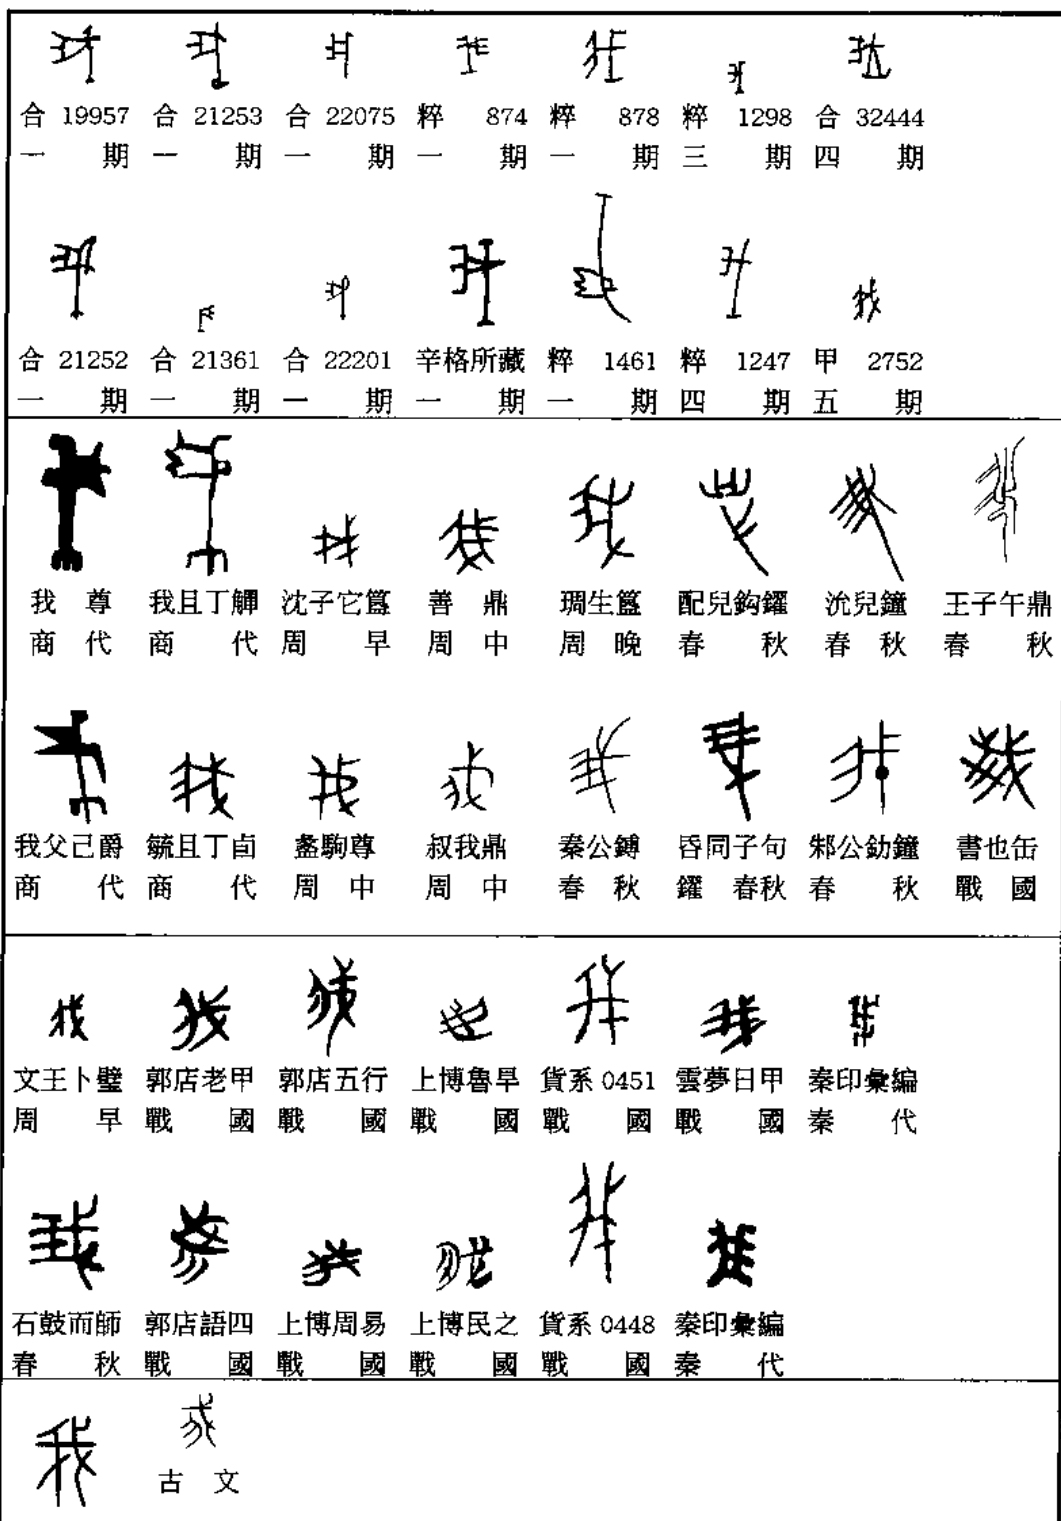 合 19957 合 21253 合 22075 粹 874 粹 878 粹 1298 合 32444
一期 一期 一期 一期 一期 三期 四期
合 21252 合 21361 合 22201 辛格所藏 粹 1461 粹 1247 甲 2752
一期 一期 一期 一期 一期 四期 五期
我尊 我且丁觶 沈子它簋 善鼎 琱生簋 配兒鈎鑃 沇兒鐘 王子午鼎
商代 商代 周早 周中 周晚 春秋 春秋 春秋
我父己爵 毓且丁卣 盠駒尊 叔我鼎 秦公鎛 昏同子句 邾公釛鐘 書也缶
商代 商代 周中 周中 春秋 鑃春秋 春秋 戰國
文王卜璧 郭店老甲 郭店五行 上博魯旱 貨系 0451 雲夢日甲 秦印彙編
周早 戰國 戰國 戰國 戰國 戰國 秦代
石鼓而師 郭店語四 上博周易 上博民之 貨系 0448 秦印彙編
春秋 戰國 戰國 戰國 戰國 秦代
古文